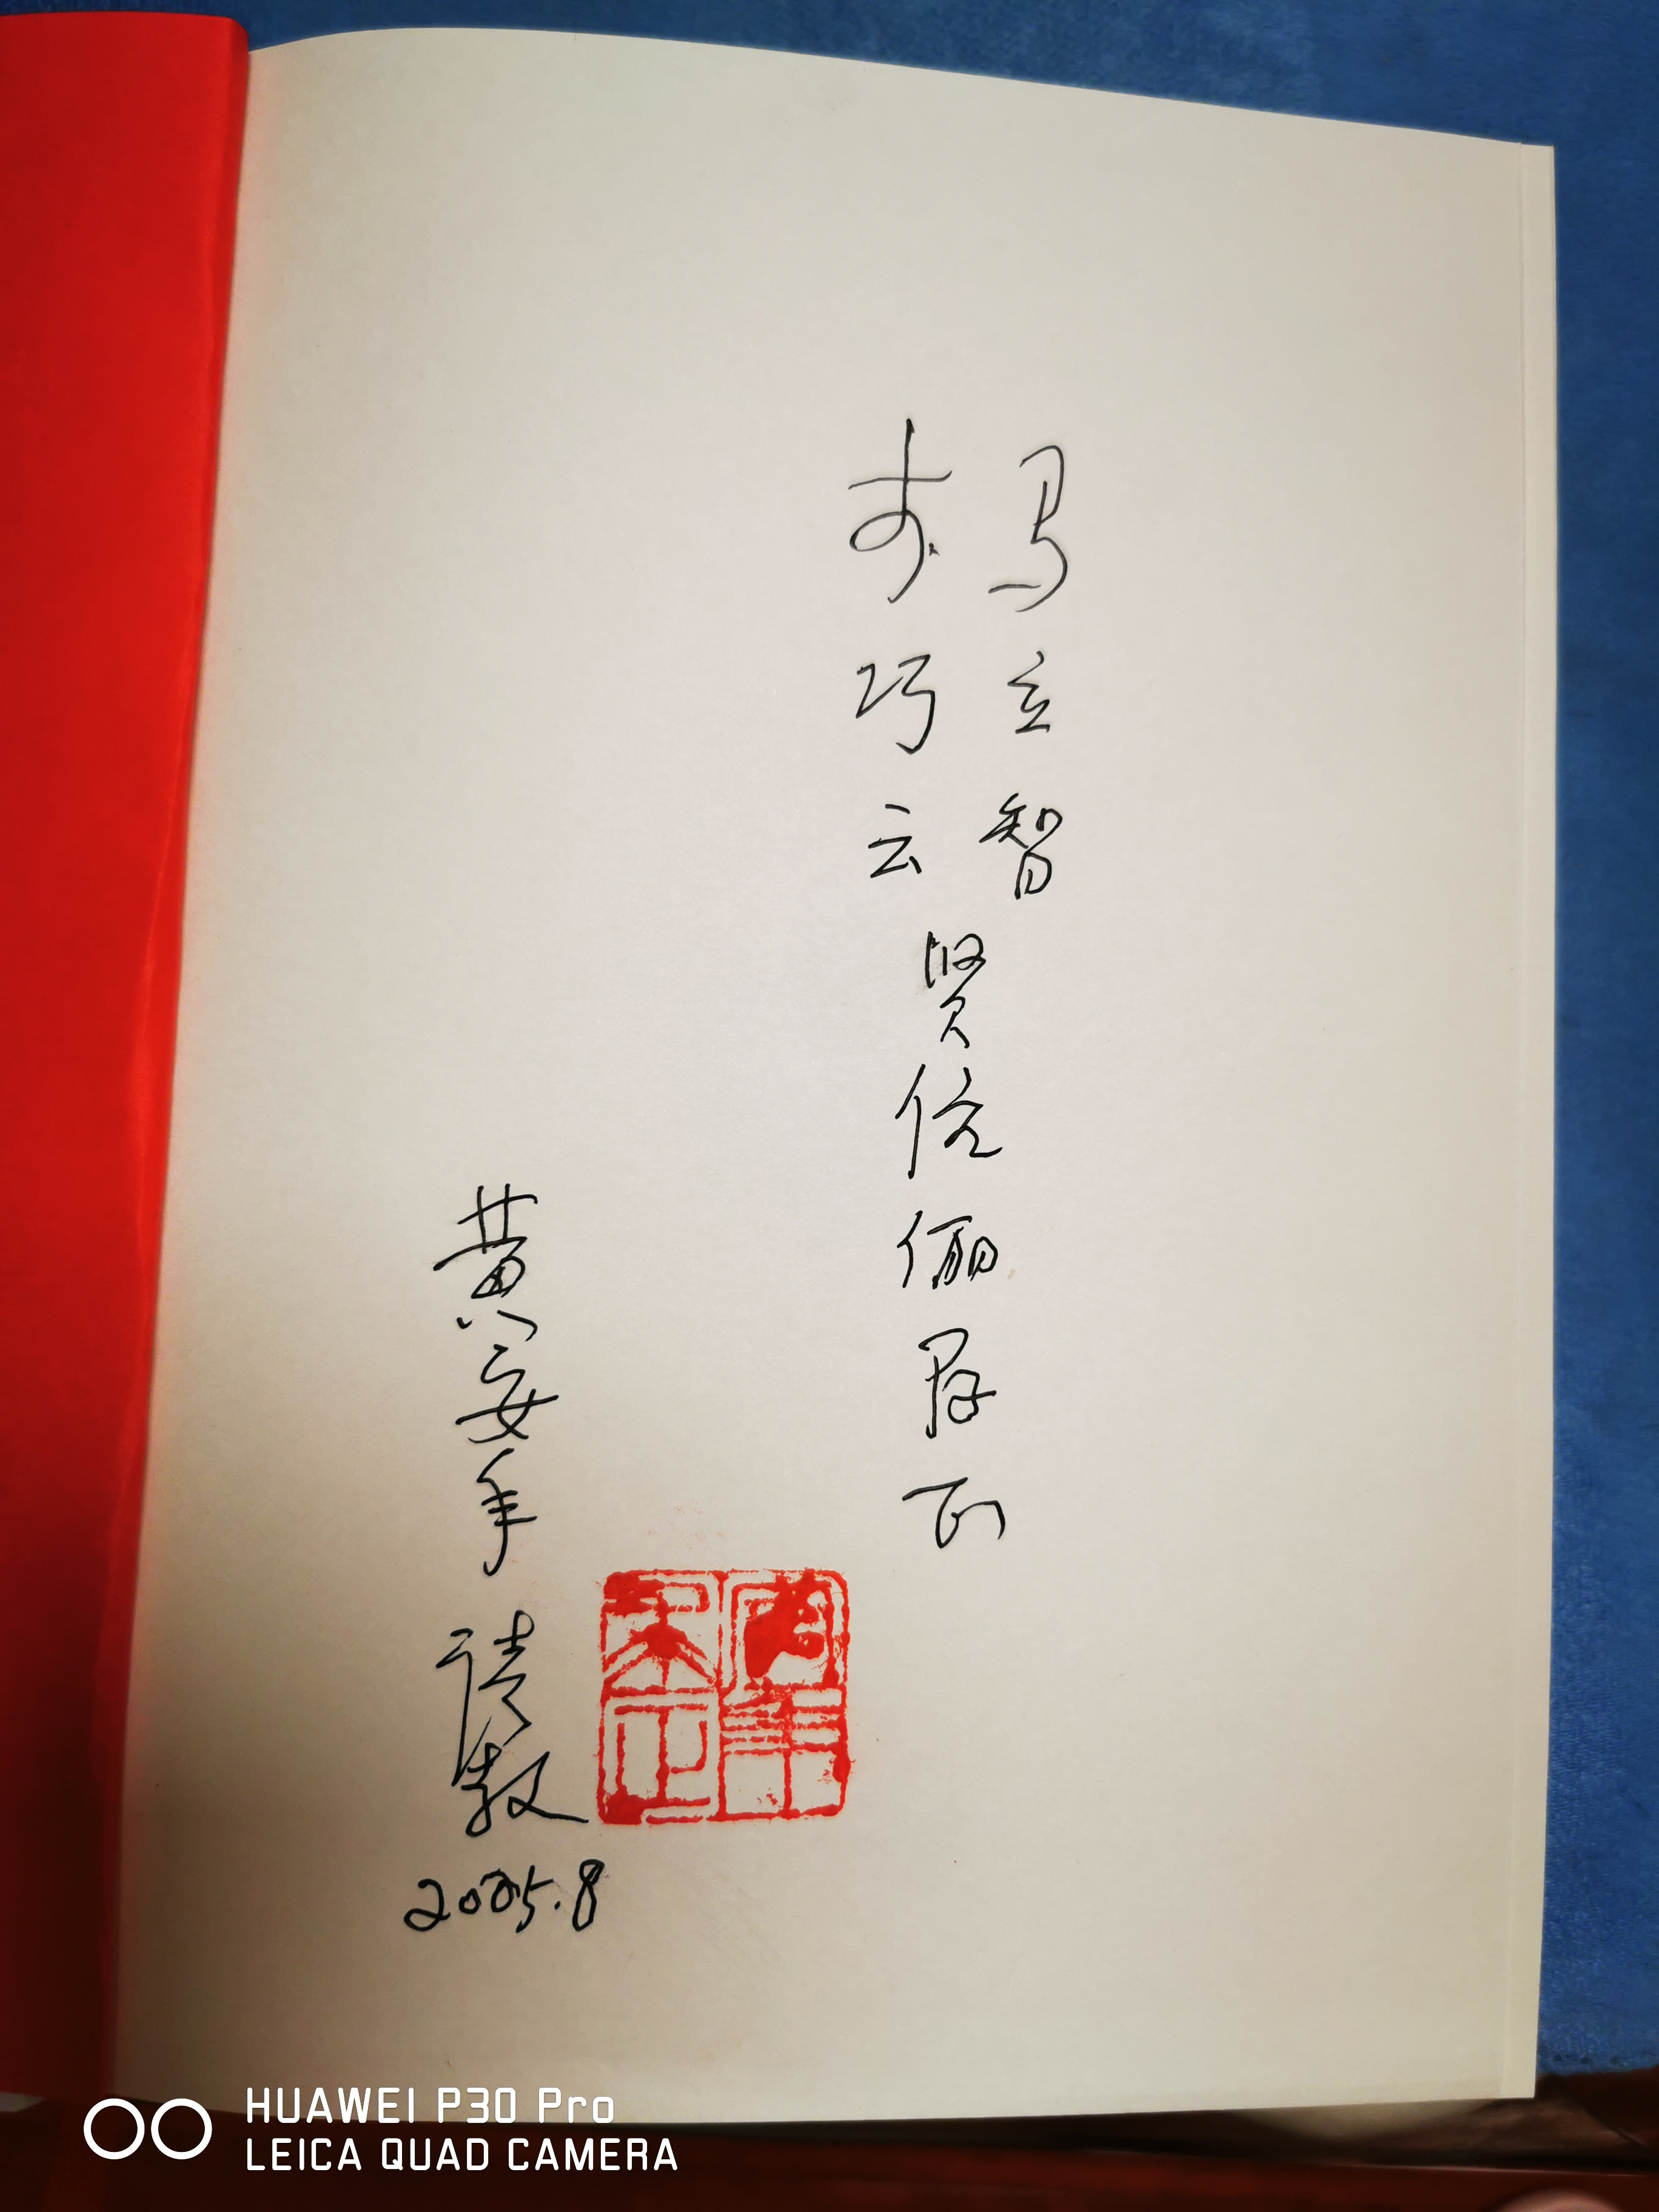 马立智
李巧云
贤伉俪存正
黄安年
请教
2025.8
HUAWEI P30 Pro
LEICA QUAD CAMERA